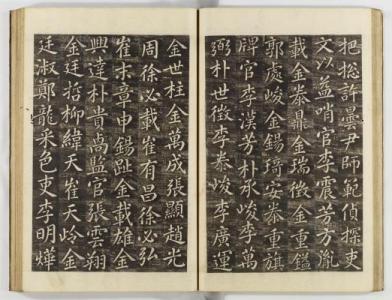 把摠許雲尹師範偵探吏
文以益哨官李震芳方胤
載金泰鼎金瑞徵金重鑑
郭處峻金錫琦安泰重旗
牌官李漢芳朴承峻李萬
弼朴世徵李泰峻李廣運
金世柱金萬成張顯趙光
周徐必載崔有昌徐必弘
崔末章申錫趾金載雄金
興達朴貴萬監官張雲翔
金廷哲柳緯天崔天岭金
廷淑鄭龍采色吏李明燁